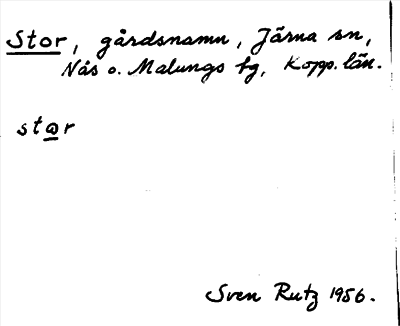 Stor, gårdsnamn, Järna sn,
Nås o. Malungs fg, Kopp. län.
star
Sven Rutz 1956.